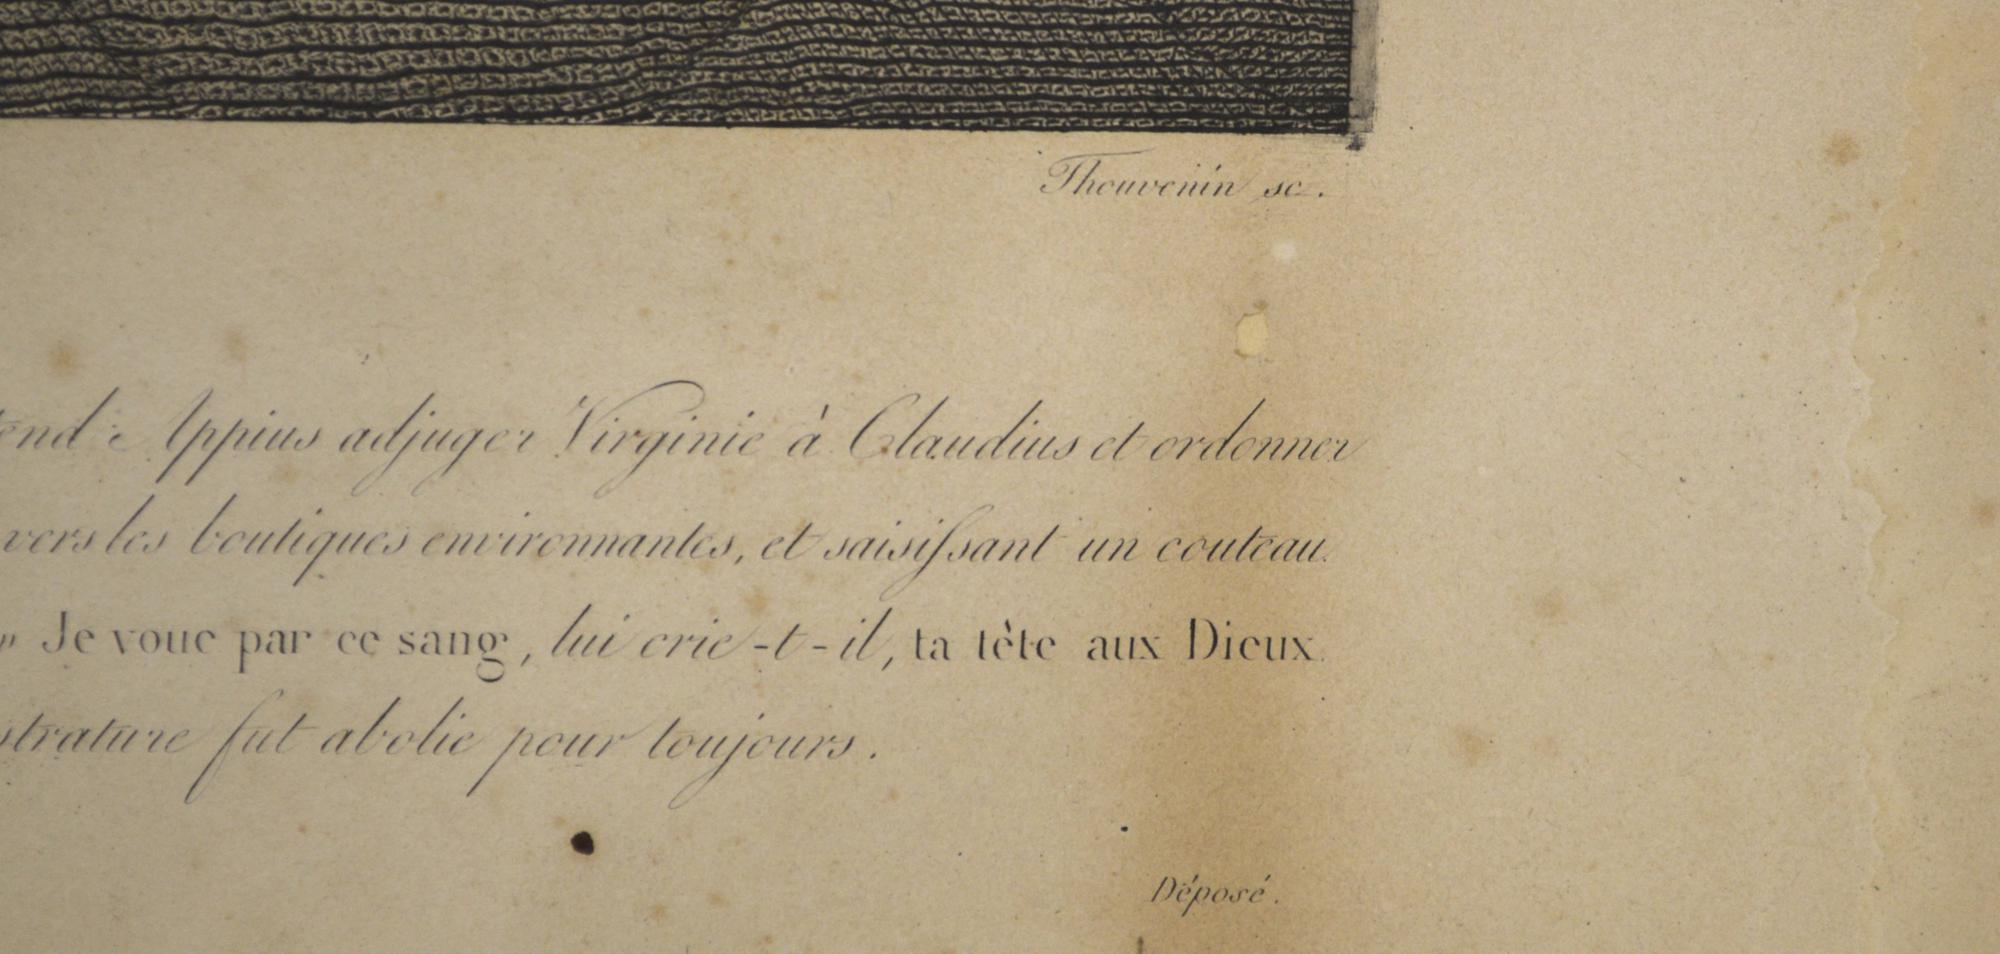 Thouvenin sc.
tend Appius adjuger Virginie à Claudius et ordonner
vers les boutiques environnantes, et saisissant un couteau.
" Je voue par ce sang, lui crie-t-il, ta tête aux Dieux.
strature fut abolie pour toujours.
Déposé.